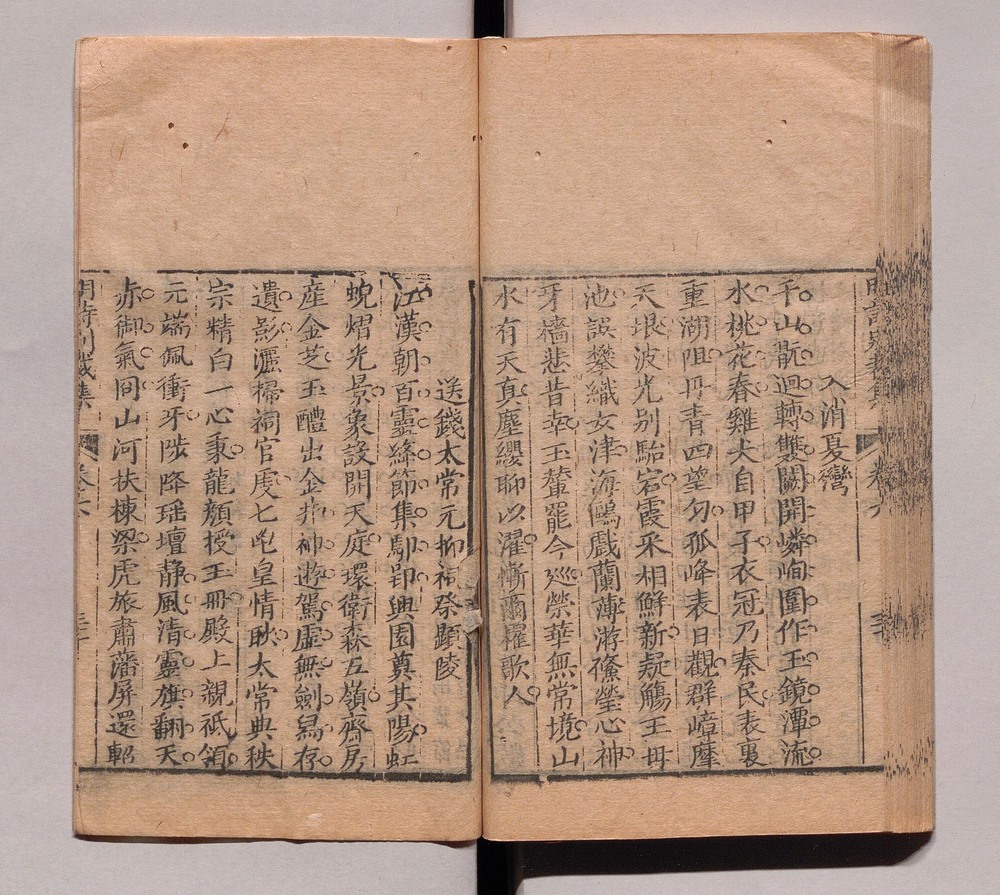 入消夏灣
千山䯓迴轉雙闕開嶙峋圍作玉鏡潭流
水桃花春雞犬自甲子衣冠乃秦民表裏
重湖阻丹青四望勻孤峰表日觀群嶂摩
天垠波光别駘宕霞采相鮮新疑觴王母
池誤攀織女津海鷗戲蘭薄游鯈瑩心神
牙檣悲昔幸玉輦罷今巡榮華無常境山
水有天真塵纓聊以濯慚爾櫂歌人
送錢太常元抑祠祭顯陵
江漢朝百靈絳節集馭郢興園奠其陽虹
蜺熠光景象設開天庭環衛森五嶺齋房
産金芝玉醴出金井神遊駕虛無劍舄存
遺影灑掃祠官虔七鬯皇情㫟太常典秩
宗精白一心秉龍顏授玉冊殿上親祗領
元端佩衝牙陟降瑶壇静風清靈旗翻天
赤御氣囘山河扶棟梁虎旅肅藩屏還軺
明詩別裁集
卷之六